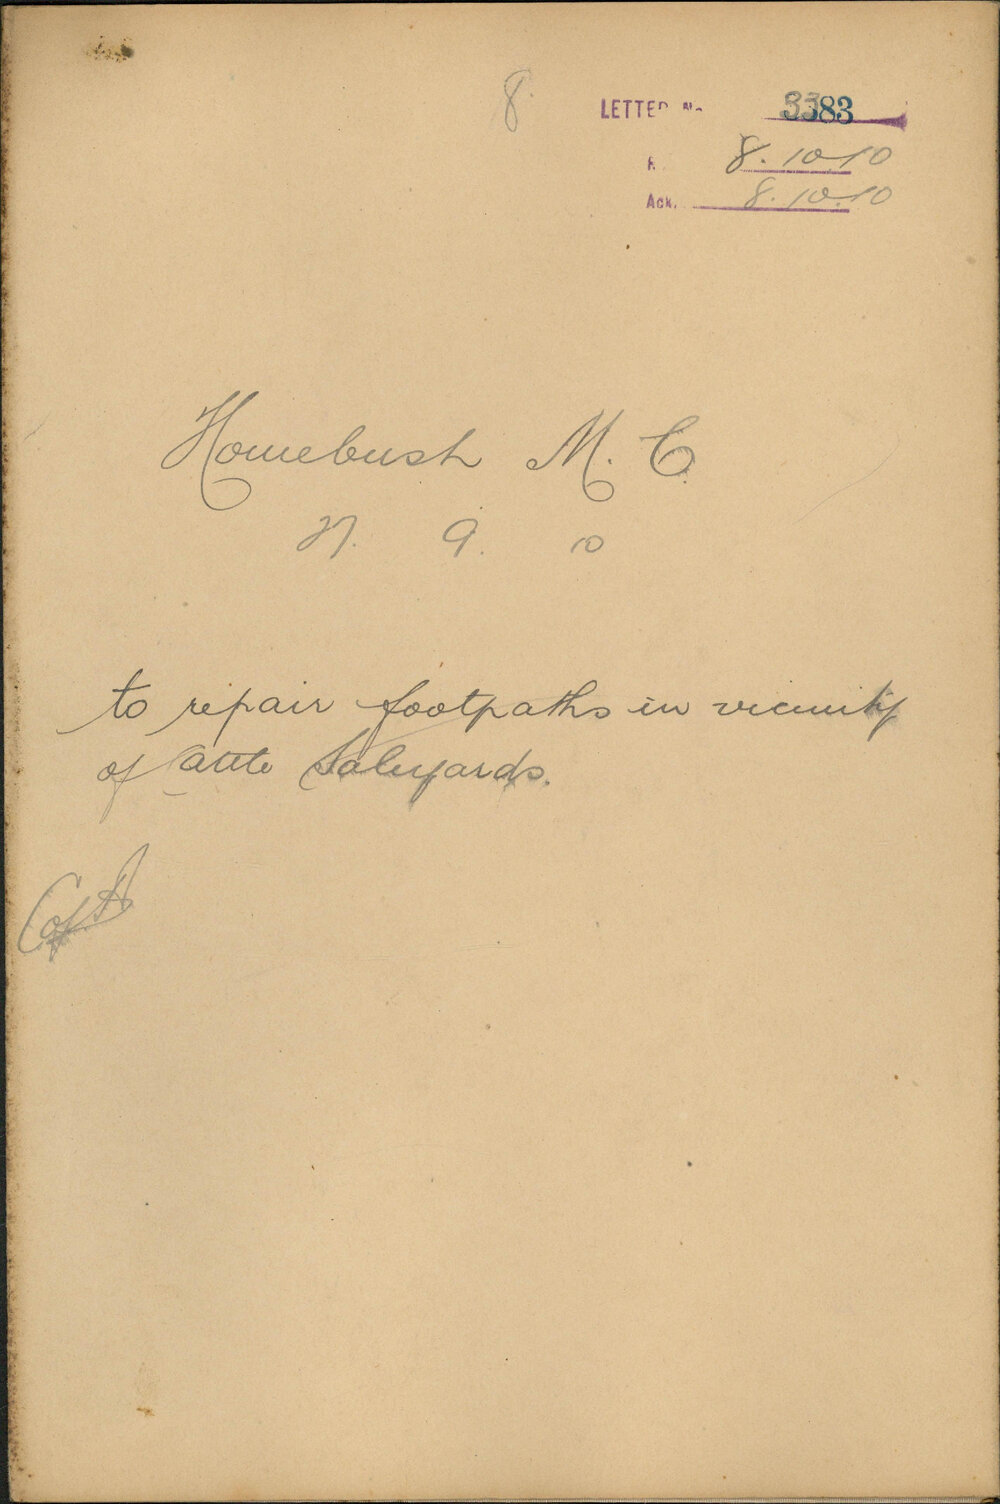 8
LETTER No 3383
R. 8.10.10
Ack. 8.10.10
Homebush M.C.
27. 9. 10
to repair footpaths in vicinity
of Cattle Saleyards.